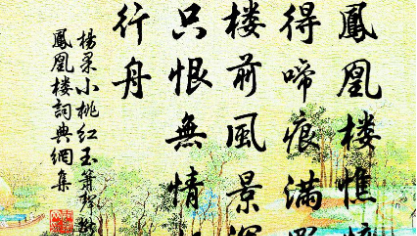 鳳凰楼憔悴
得啼痕满
楼前風景
只恨無情
行舟
楊果小桃红玉箫
鳳凰楼詞典網集